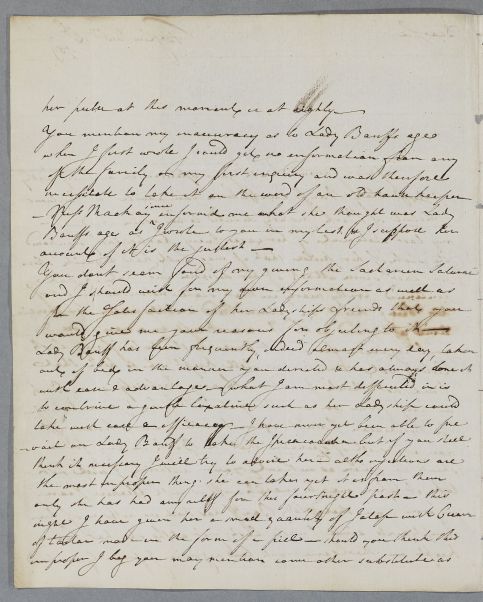 her pulse at this moment is at eighty —
You mention my inaccuracy as to Lady Banffs age
when I first wrote I could get no information from any
of the family on my first inquiry and was therefore
necessitate to take it on the word of an old house keeper
— Miss Mackay since informed me what she thought was Lady
Banffs age as I wrote to you in my last, & I suppose her
account of it is the justest —
You dont seem fond of my giving the Saline
and I should wish for my own information as well as
for the satisfaction of her Ladyships friends that you
would give me your reasons for objecting to it —
Lady Banff has been frequently, indeed almost every day, taken
out of bed in the manner you directed & has always done it
with ease & advantage — what I am most difficulted in is
to contrive a gentle laxative such as her Ladyship could
take with ease & efficacy — I have never yet been able to pre
-vail on Lady Banff to take the Ipecacuan but if you still
think it necessary I will try to advise her — altho injections are
the most improper thing she can take yet it is from them
only she has had any for the fourthnight past — this
night I have given her a small quantity of Jalap with Cream
of tartar now in the form of a pill — should you think this
improper I beg you may mention some other substitute as